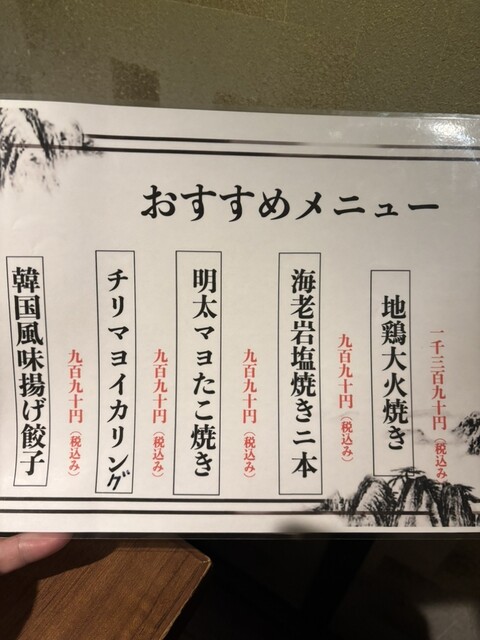 おすすめメニュー
一千三百九十円（税込み）
地鶏大火焼き
九百九十円（税込み）
海老岩塩焼き二本
九百九十円（税込み）
明太マヨたこ焼き
九百九十円（税込み）
チリマヨイカリング
九百九十円（税込み）
韓国風味揚げ餃子